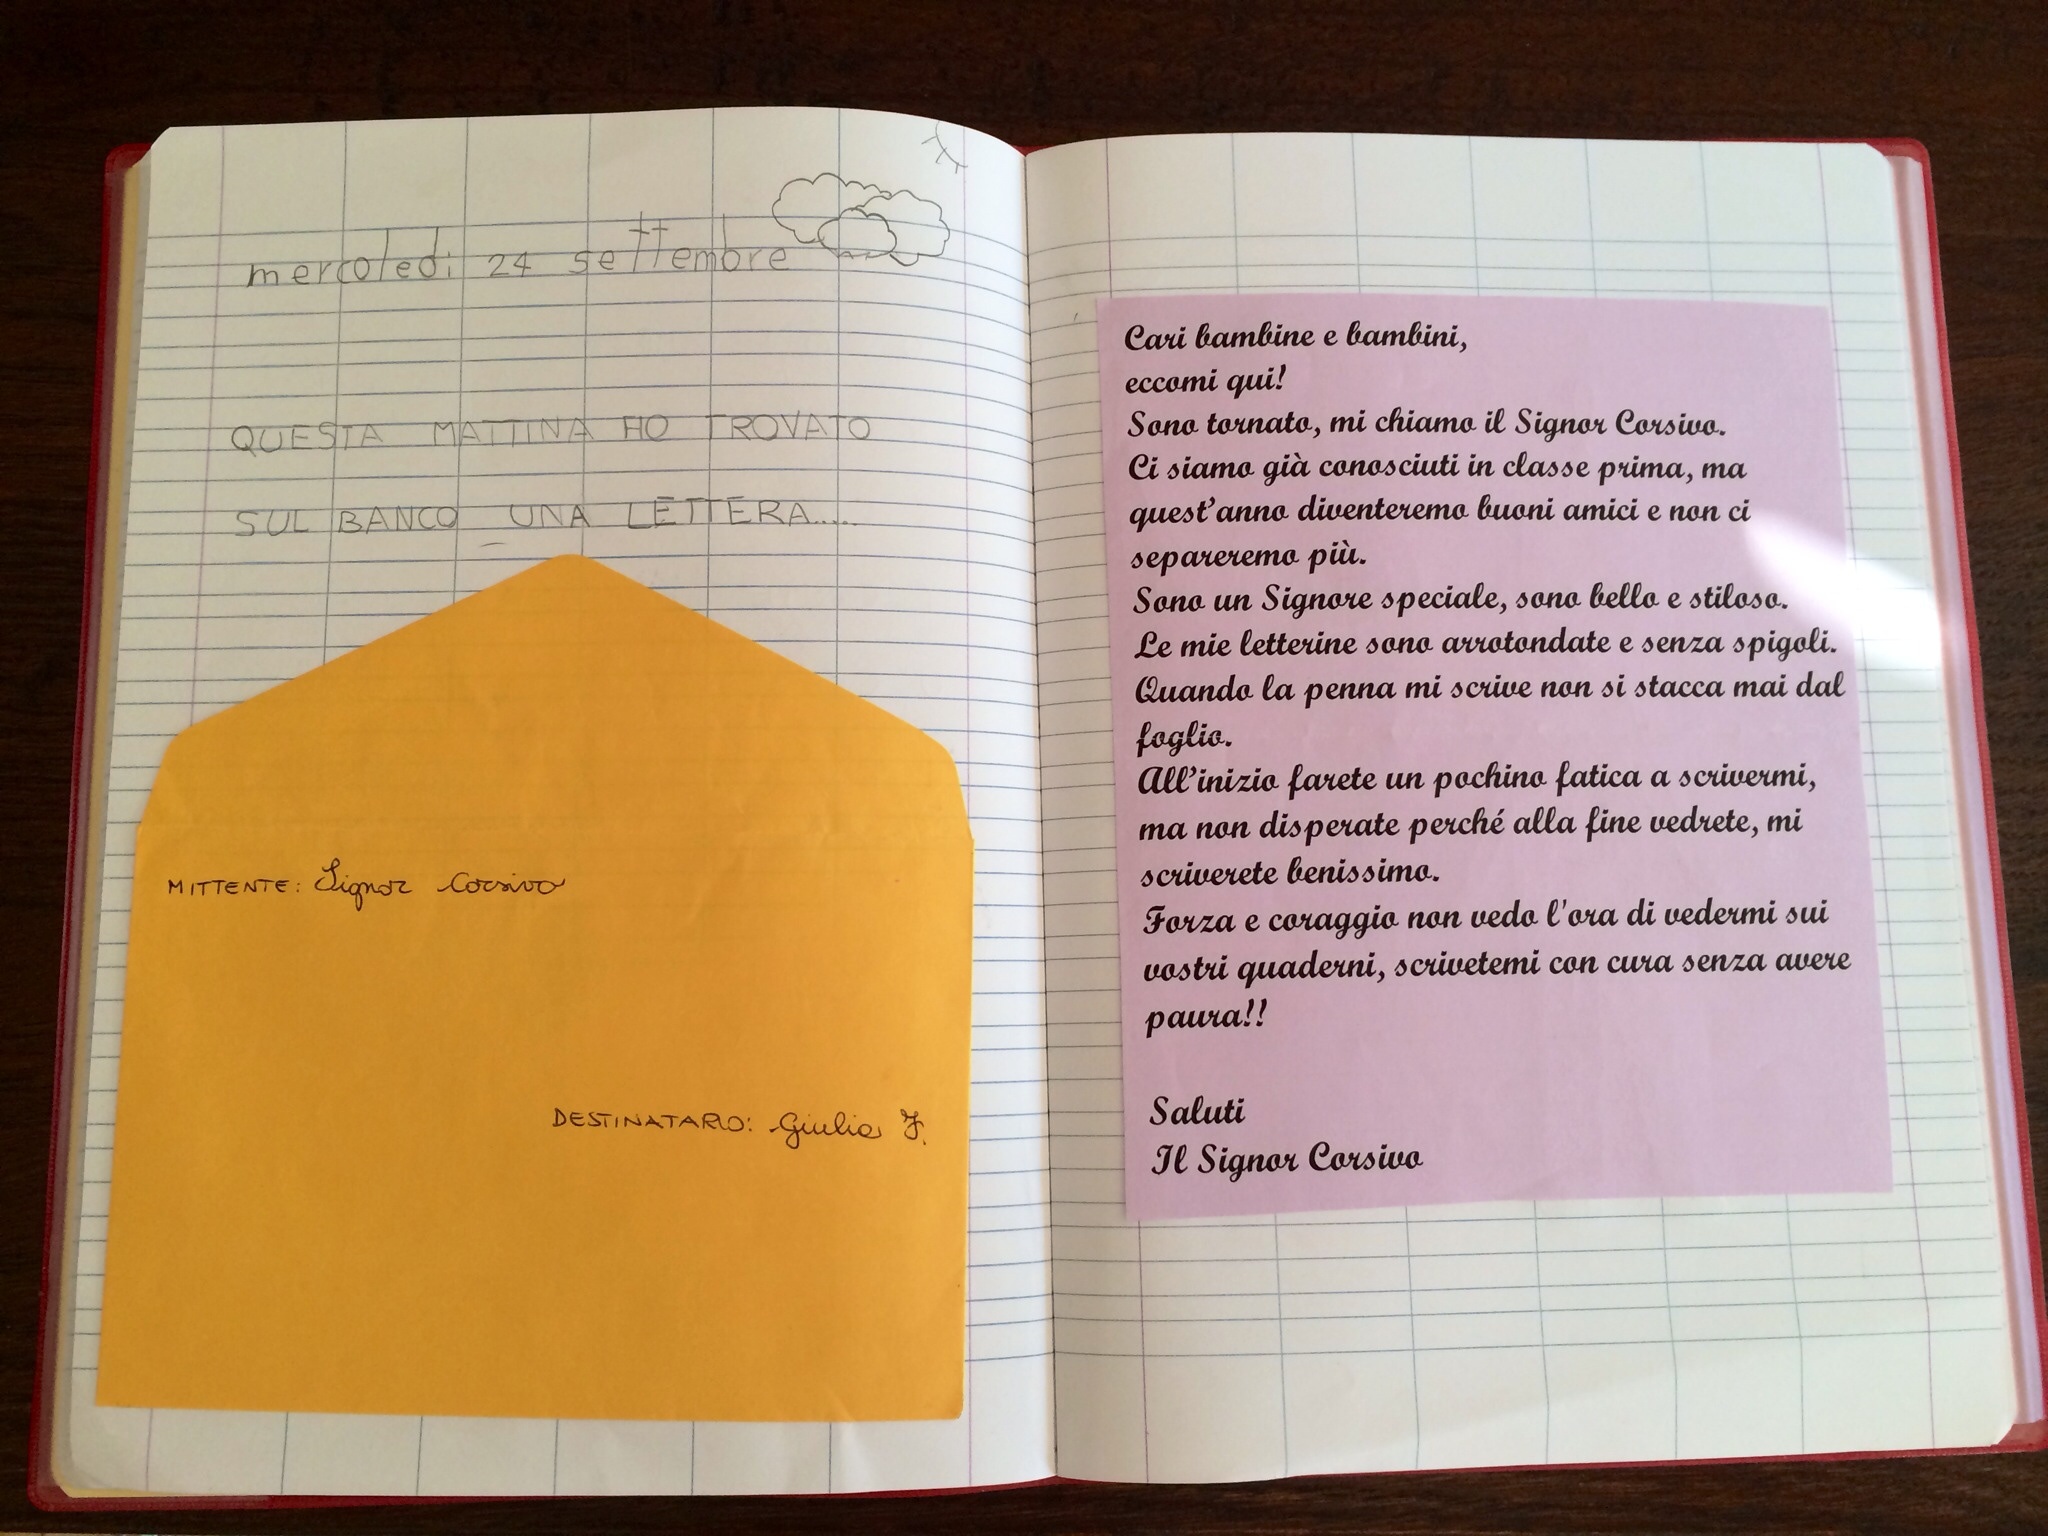 mercoledì 24 settembre
QUESTA MATTINA HO TROVATO
SUL BANCO UNA LETTERA.....
MITTENTE: Signor Corsivo
DESTINATARIO: Giulia F.
Cari bambine e bambini,
eccomi qui!
Sono tornato, mi chiamo il Signor Corsivo.
Ci siamo già conosciuti in classe prima, ma
quest'anno diventeremo buoni amici e non ci
separeremo più.
Sono un Signore speciale, sono bello e stiloso.
Le mie letterine sono arrotondate e senza spigoli.
Quando la penna mi scrive non si stacca mai dal
foglio.
All'inizio farete un pochino fatica a scrivermi,
ma non disperate perché alla fine vedrete, mi
scriverete benissimo.
Forza e coraggio non vedo l'ora di vedermi sui
vostri quaderni, scrivetemi con cura senza avere
paura!!
Saluti
Il Signor Corsivo